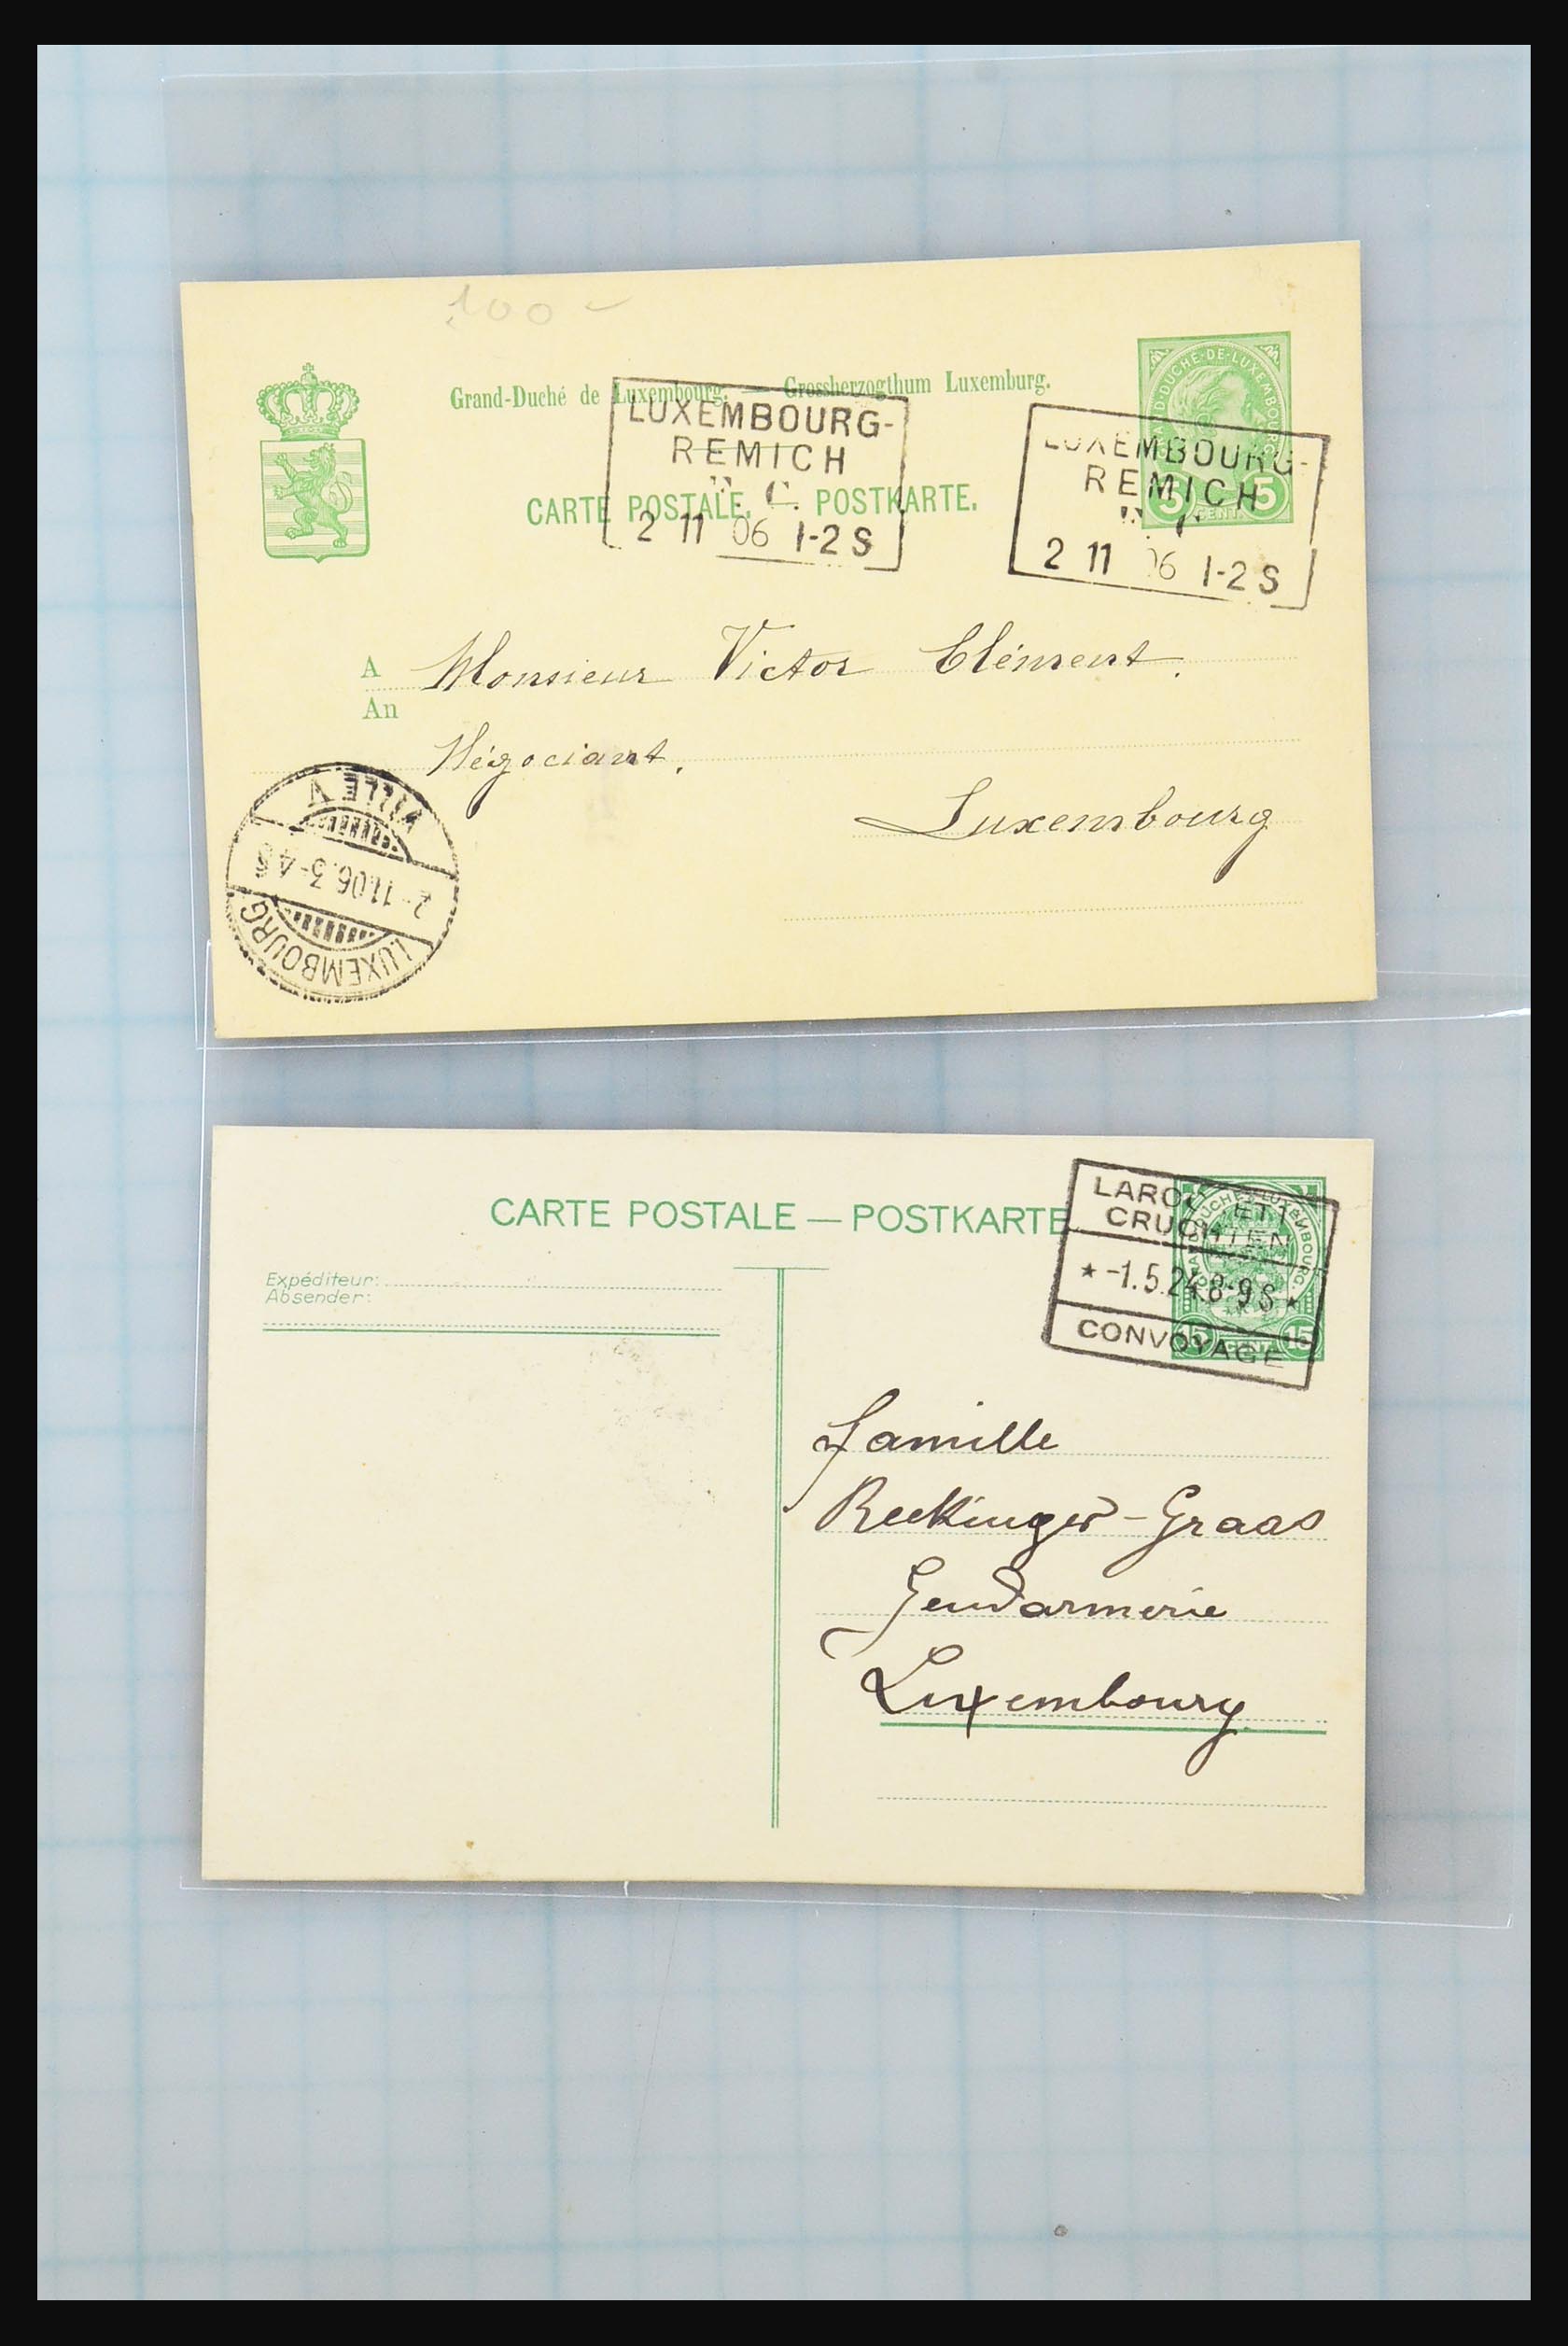 100 -
Grand-Duché de Luxembourg. — Grossherzogthum Luxemburg.
LUXEMBOURG-
REMICH
2 11 06 1-2 S
CARTE POSTALE. POSTKARTE.
GRAND-DUCHÉ-DE-LUXEMBOURG
5 CENT. 5
LUXEMBOURG-
REMICH
2 11 06 1-2 S
A
An
Monsieur Victor Clément.
Négociant.
Luxembourg
LUXEMBOURG
2-11.06.3-4 S
VILLE V
CARTE POSTALE — POSTKARTE
Expéditeur:
Absender:
GRAND DUCHÉ LUXEMBOURG.
15 CENT. 15
LAROCHETTE
CRUCHTEN
* -1.5.24.8-9 S *
CONVOYAGE
famille
Reckinger-Graas
Gendarmerie
Luxembourg